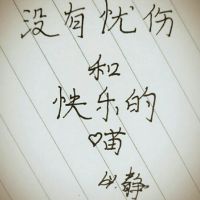 没有忧伤
和
快乐的
♡喵
静